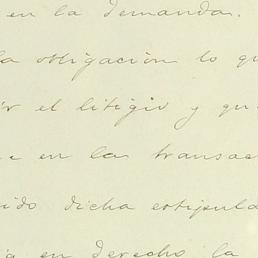 en la demanda.
la obligación lo qu
ir el litigio y qu
e en la transac
ido dicha estipula
en derecho la